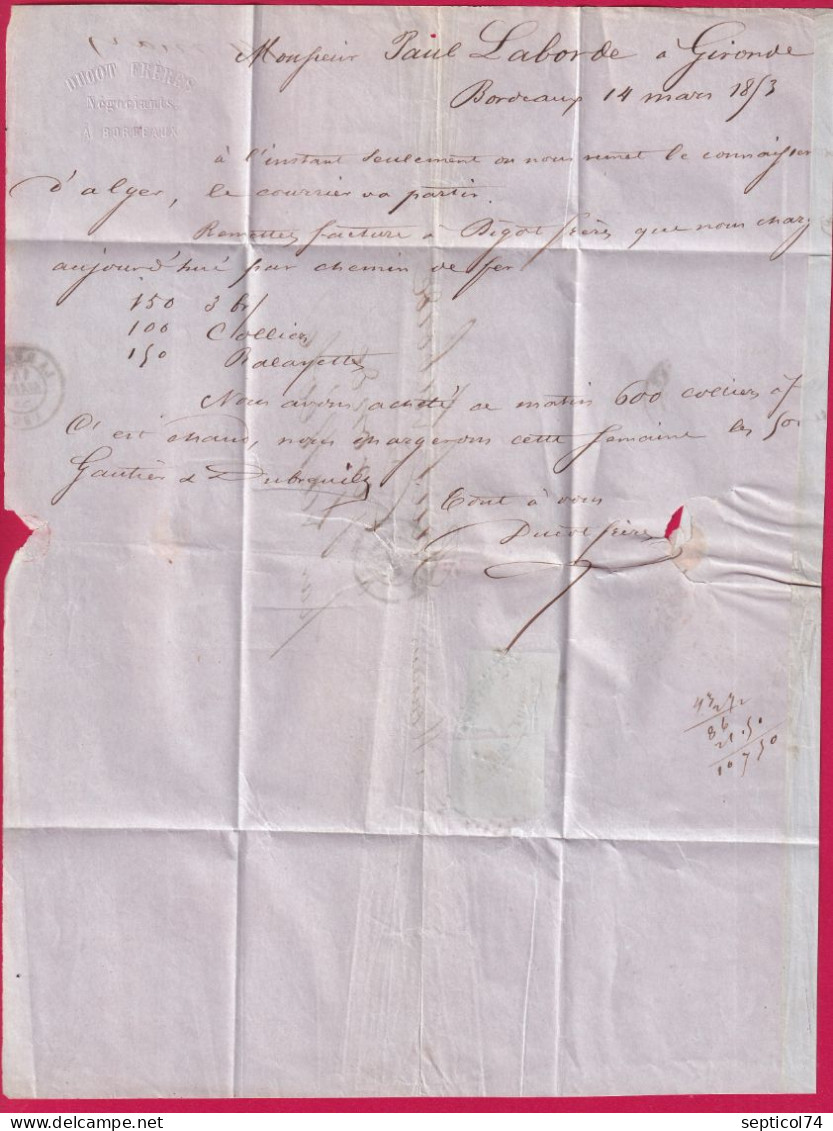 DUCOT FRÈRES
Négociants
A BORDEAUX
Monsieur Paul Laborde à Gironde
Bordeaux 14 mars 1853
à l'instant seulement on nous remet le connaissem
d'alger, le courrier va partir.
Remettez facture à Bigot frères que nous charg
aujourd'hui par chemin de fer
150 3 br/
100 Colliers
150 Balayettes
Nous avons acheté ce matin 600 colliers à 7
C'est chaud, nous chargerons cette semaine les 50
Gautier &
Tout à vous
Ducot frères
86
21.50
107 50
Delcampe.net
septicol74